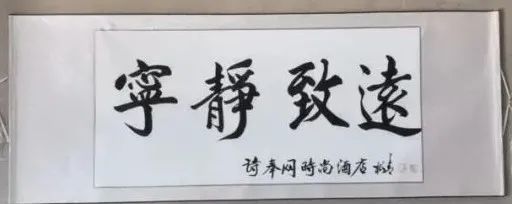 寧靜致遠
诗奉网時尚酒店